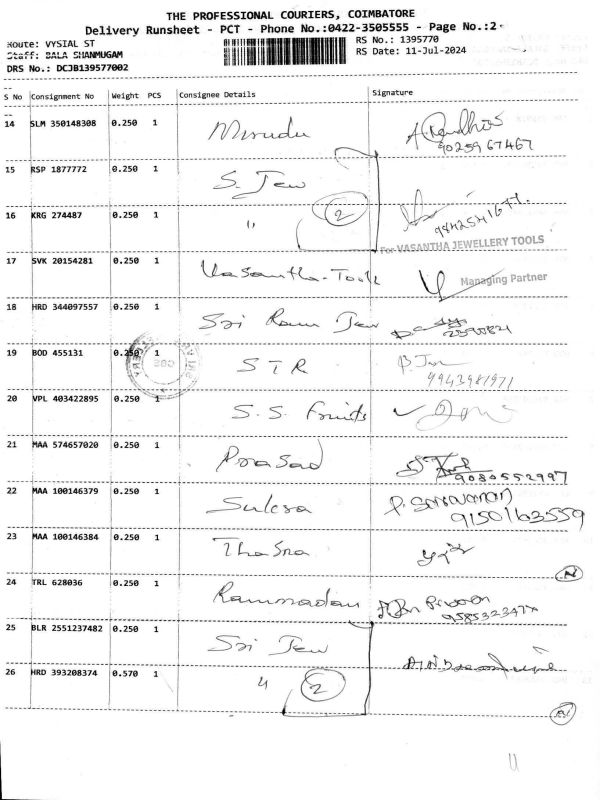 THE PROFESSIONAL COURIERS, COIMBATORE
Delivery Runsheet - PCT - Phone No.:0422-3505555 - Page No.:2
Route: VYSIAL ST
RS No.: 1395770
Staff: BALA SHANMUGAM
RS Date: 11-Jul-2024
DRS No.: DCJB1395577002
S No Consignment No Weight PCS Consignee Details Signature
14 SLM 350148308 0.250 1 Mrudu
90259 67467
15 RSP 1877772 0.250 1 S. Jew
16 KRG 274487 0.250 1 " 2
For VASANTHA JEWELLERY TOOLS
17 SVK 20154281 0.250 1 Vasantha-Tools
Managing Partner
18 HRD 344097557 0.250 1 Sri Ram Jew
19 BOD 455131 0.250 1 STR
9943981971
20 VPL 403422895 0.250 1 S.S. Fruits
21 MAA 574657020 0.250 1 Prasad
9080552997
22 MAA 100146379 0.250 1 Suksa P. Saravanan
9150163559
23 MAA 100146384 0.250 1 Thasna
24 TRL 628036 0.250 1 Rammadan
25 BLR 2551237482 0.250 1 Sri Jew
26 HRD 393208374 0.570 1 " 2